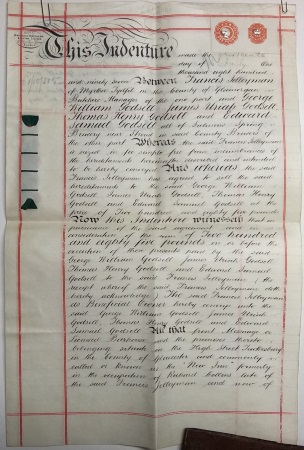 This Indenture made the
day of One
thousand eight hundred
and ninety Between Francis Jelleyman
of Merthyr Tydfil in the County of Glamorgan
Manager of the one part and George
William Godsell James Ulrich Godsell
Thomas Henry Godsell and Edward
Samuel Godsell all of Salmons Spring
Brewery near Stroud in said County Brewers of
the other part Whereas the said Francis Jelleyman
is seized in fee simple free from incumbrances of
the hereditaments hereinafter described and intended
to be hereby conveyed And whereas the said
Francis Jelleyman has agreed to sell the said
hereditaments to the said George William
Godsell James Ulrich Godsell Thomas Henry
Godsell and Edward Samuel Godsell at the
price of Two hundred and eighty five pounds
Now this Indenture witnesseth that in
pursuance of the said agreement and in
consideration of the sum of Two hundred
and eighty five pounds on or before the
execution of these presents paid by the said
George William Godsell James Ulrich Godsell
Thomas Henry Godsell and Edward Samuel
Godsell to the said Francis Jelleyman (the
receipt whereof the said Francis Jelleyman doth
hereby acknowledge) The said Francis Jelleyman
as Beneficial Owner hereby conveys unto the
said George William Godsell James Ulrich
Godsell Thomas Henry Godsell and Edward
Samuel Godsell All that
and the premises thereto
belonging situate in the High Street Tewkesbury
in the County of Gloucester and commonly
called or known as the New Inn formerly
in the occupation of Richard Collins late of
the said Francis Jelleyman and now of